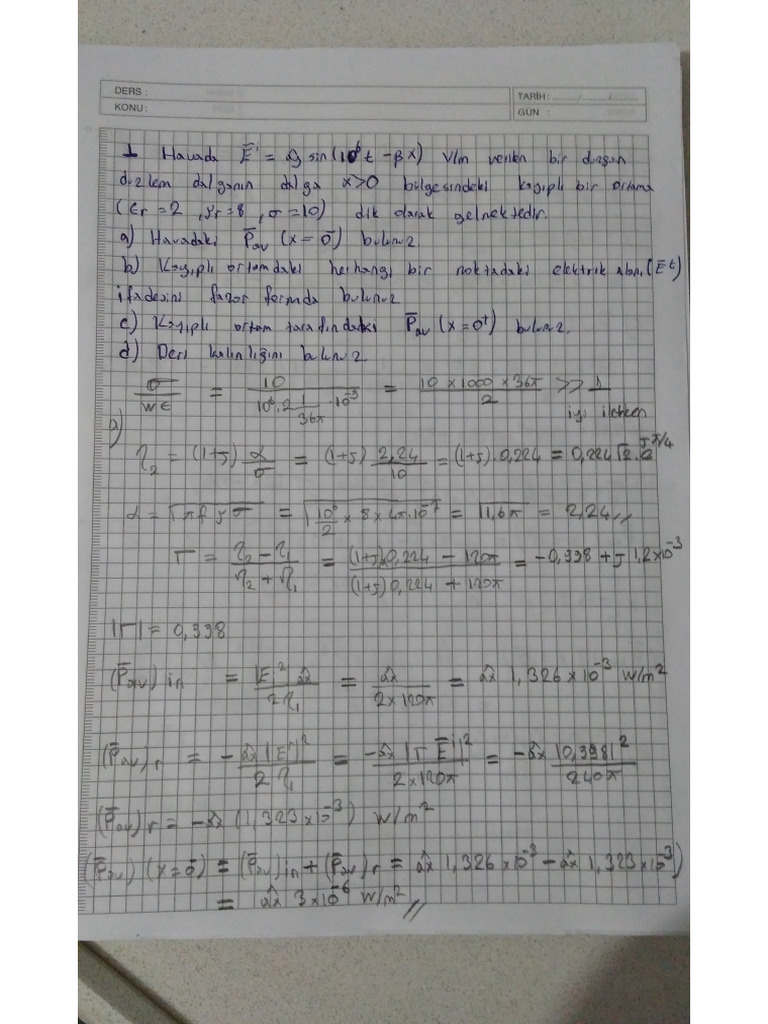 DERS :
TARİH: ...../...../.....
KONU:
GÜN :
1 Havada Ē^i = ây sin(10^6 t - βx) V/m verilen bir düzgün
düzlem dalganın dalga x>0 bölgesindeki kayıplı bir ortama
(εr = 2 , μr = 8 , σ = 10) dik olarak gelmektedir.
a) Havadaki P̄av (x = 0⁻) bulunuz
b) Kayıplı ortamdaki herhangi bir noktadaki elektrik alanı (Ē^t)
ifadesini fazör formunda bulunuz
c) Kayıplı ortam tarafındaki P̄av (x = 0⁺) bulunuz.
d) Deri kalınlığını bulunuz
σ/wε = 10/(10^6 . 2 1/36π . 10^-3) = 10 x 1000 x 36π / 2 >> 1
iyi iletken
a)
η2 = (1+j) α/σ = (1+j) 2,24/10 = (1+j) . 0,224 = 0,224 √2 . e^jπ/4
α = √πfμσ = √(10^6/2 x 8 x 4π.10^-7) = √1,6π = 2,24 //
Γ = (η2 - η1)/(η2 + η1) = ((1+j)0,224 - 120π)/((1+j)0,224 + 120π) = -0,998 + j 1,2x10^-3
|Γ| = 0,998
(P̄av)in = |E|² âx / 2η1 = âx / 2 x 120π = âx 1,326 x 10^-3 W/m²
(P̄av)r = - âx |E^r|² / 2η1 = -âx |Γ Ē^i|² / 2 x 120π = -âx |0,998|² / 240π
(P̄av)r = -âx (1,323 x 10^-3) W/m²
(P̄av) (x = 0⁻) = (P̄av)in + (P̄av)r = âx 1,326 x 10^-3 - âx 1,323 x 10^-3)
= âx 3 x 10^-6 W/m² //